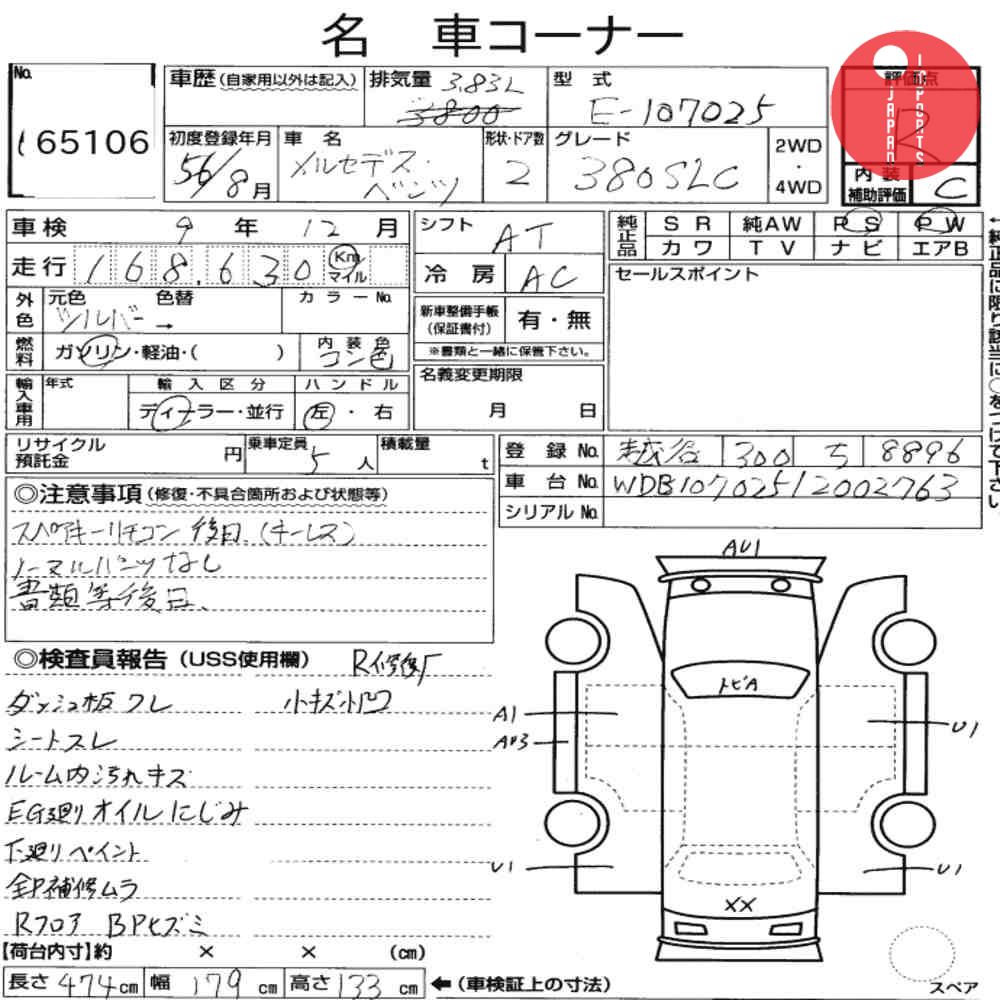 名 車コーナー
No. 65106
車歴(自家用以外は記入) 排気量 3.83L 3800 型 式 E-107025
初度登録年月 56/8月 車 名 メルセデス・ベンツ 形状・ドア数 2 グレード 380SLC 2WD・4WD
評価点 R
内装補助評価 C
JAPAN IMPORTS
車検 9年 12月
走行 168,630 Km マイル
外色 元色 シルバー → 色替 カラーNo.
燃料 ガソリン・軽油・( ) 内装色 コン色
輸入車用 年式 輸入区分 ディーラー・並行 ハンドル 左・右
シフト AT
冷房 AC
新車整備手帳(保証書付) 有・無
※書類と一緒に保管下さい。
名義変更期限 月 日
純正品 SR 純AW PS PW
カワ TV ナビ エアB
セールスポイント
リサイクル預託金 円 乗車定員 5人 積載量 t
登録No. 越谷 300 ち 8896
車台No. WDB10702512002763
シリアルNo.
◎注意事項(修復・不具合箇所および状態等)
スペアキーリモコン後日(キーレス)
ノーマルパーツなし
書類等後日、
◎検査員報告(USS使用欄) R修復厂
ダッシュ板ワレ 小キズ小凹
シートスレ
ルーム内汚れキズ
EG廻りオイルにじみ
下廻りペイント
全P補修ムラ
Rフロア BPヒズミ
【荷台内寸】約 × × (cm)
長さ 474cm 幅 179cm 高さ 133cm ←(車検証上の寸法)
AU1
トビA
A1
AU3
U1
U1
U1
XX
スペア